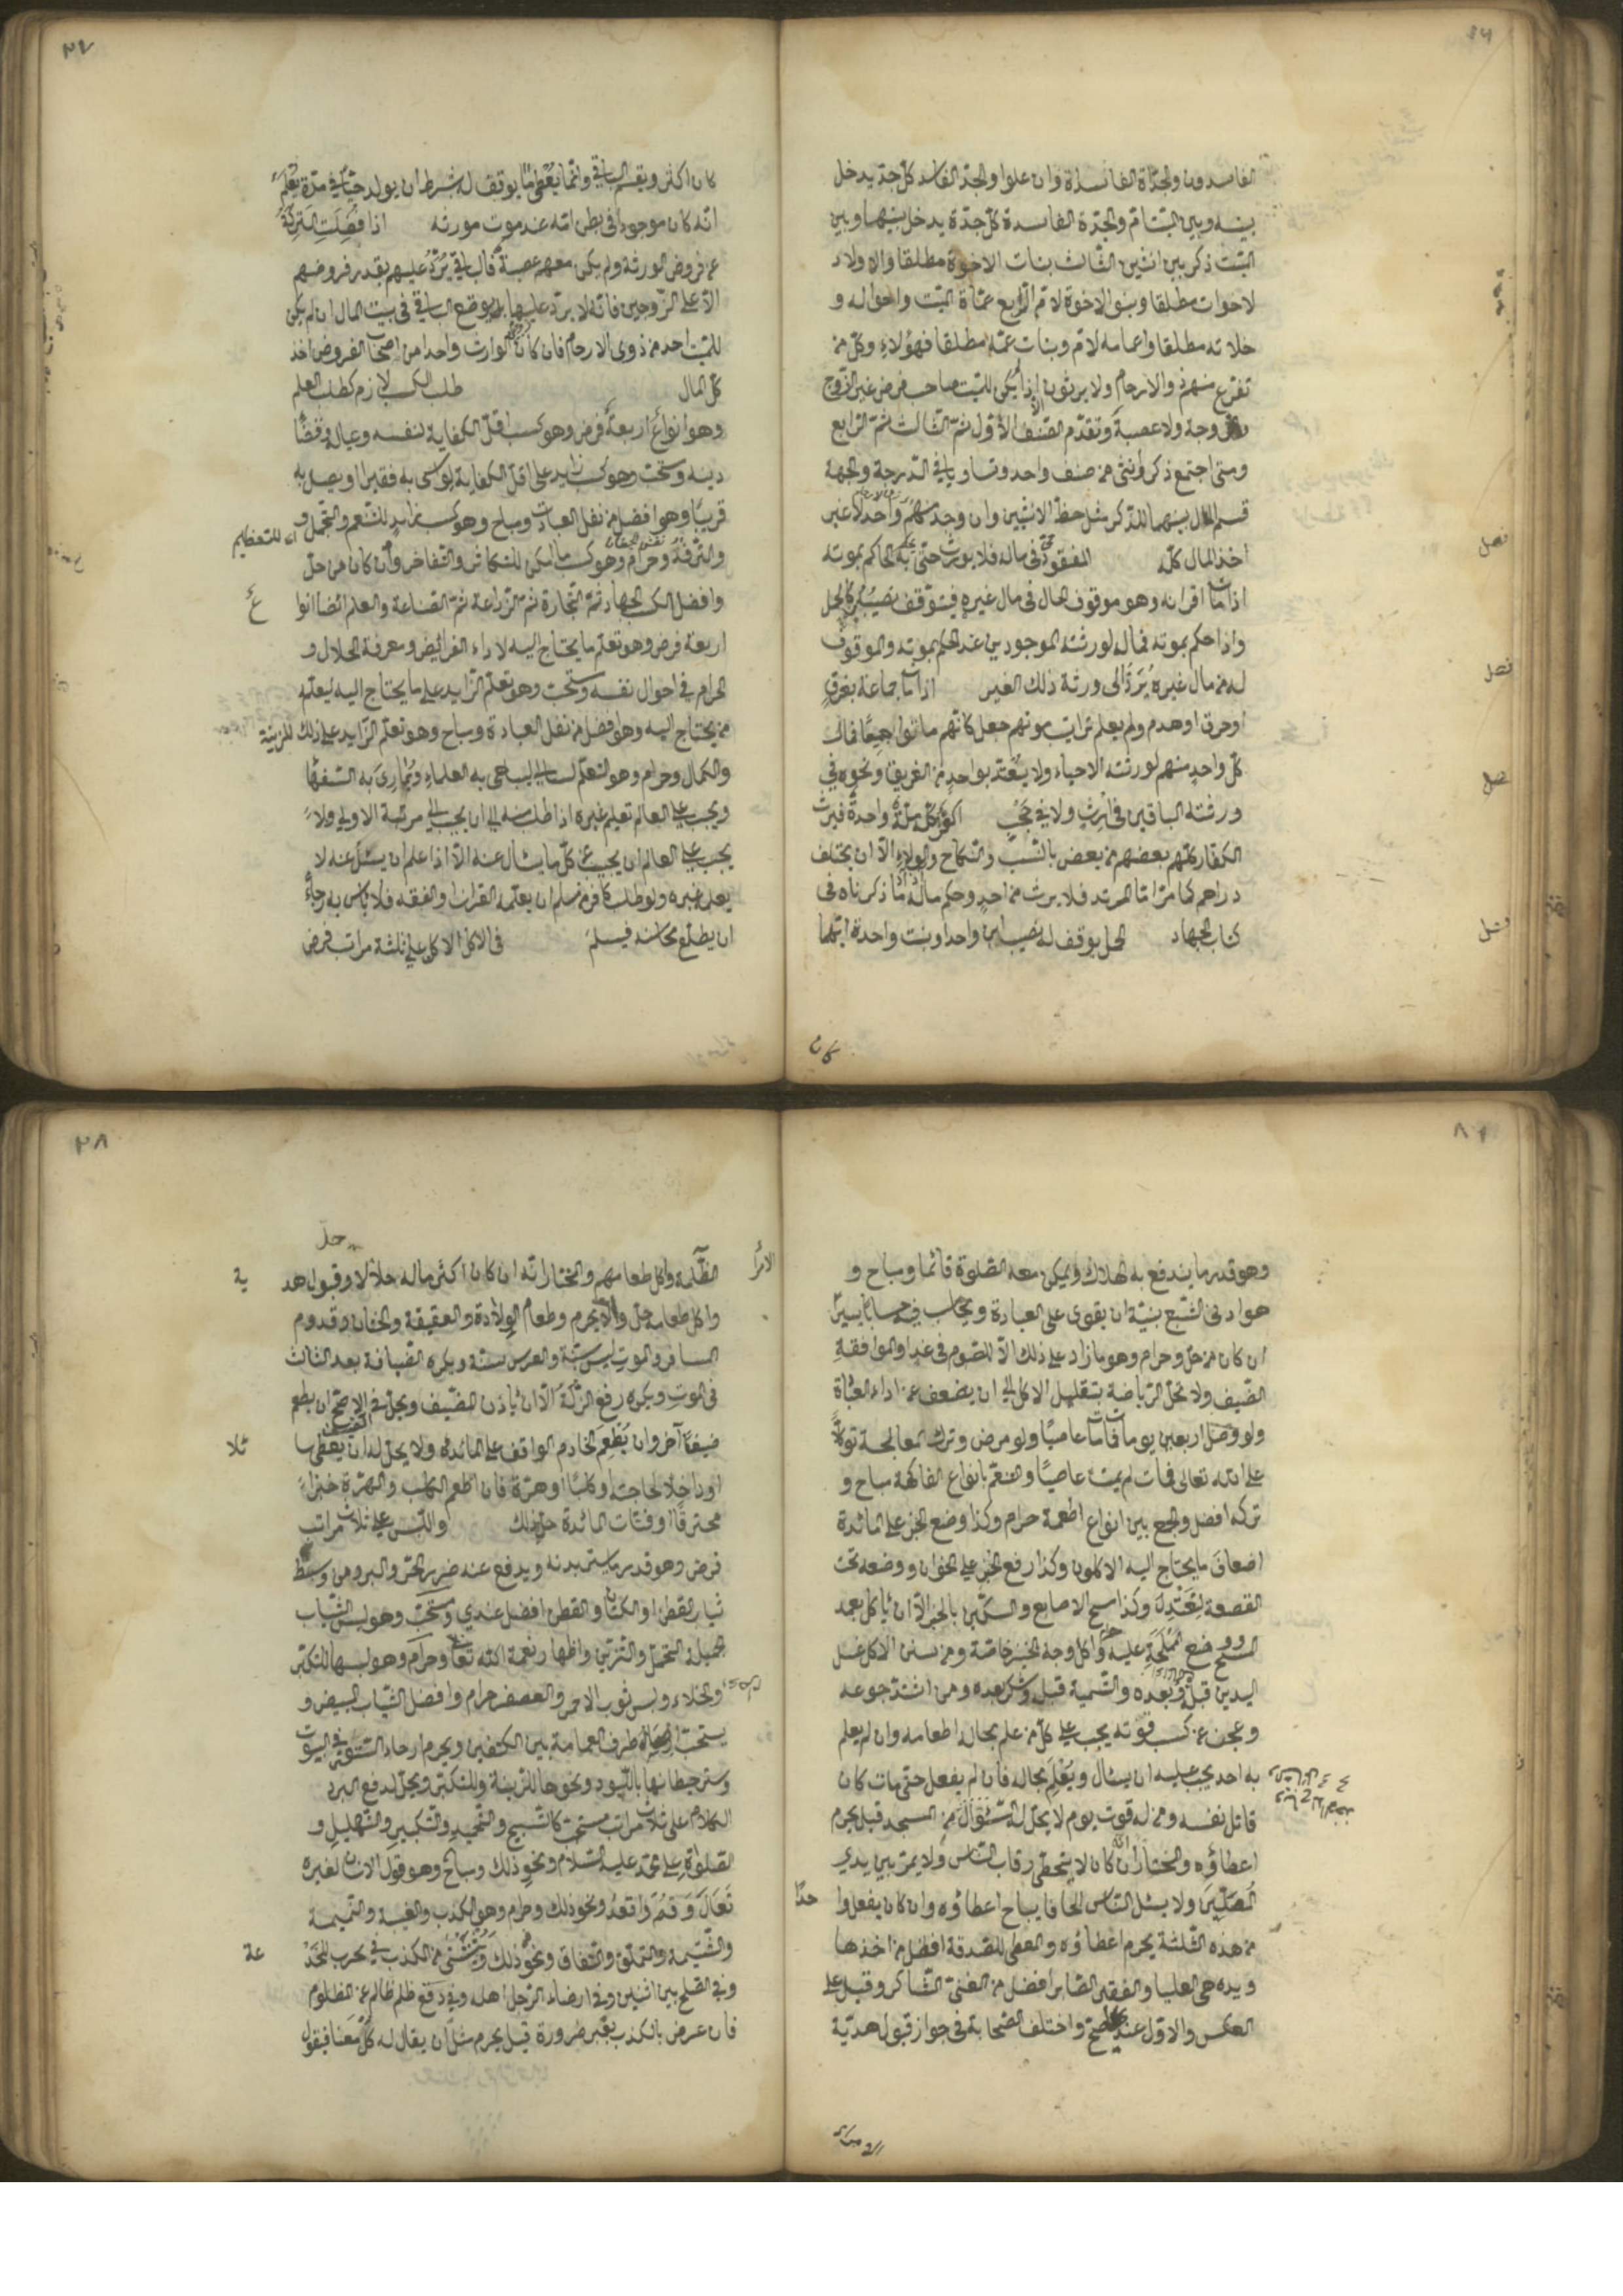 الفاسدون والجدّاة الفاسداة وان علوا والجدّ الفاسد كلّ جدّ يدخل
بينه وبين الميّت امّ والجدّة الفاسدة كلّ جدّة يدخل بينها وبين
الميّت ذكر بين انثيين الثّالث بنات الاخوة مطلقا والاولاد
لاخوات مطلقا وبنو الاخوة لامّ الرّابع عمّاة الميّت واخواله و
خلاته مطلقا واعمامه لامّ وبنات عمّه مطلقا فهؤلاء وكلّ من
تفرّع منهم ذو الارحام ولا يرثون اذا لم يكن للميّت صاحب فرض غير الزّوج
والزّوجة ولا عصبة وتقدّم الصّنف الاوّل ثمّ الثّالث ثمّ الرّابع
ومتى اجتمع ذكر وانثى من صنف واحد وتساويا في الدّرجة والجهة
قسم المال بينهما للذّكر مثل حظّ الانثيين وان وجد منهم واحد لا غير
اخذ المال كلّه المفقود حيّ في ماله فلا يورث حتّى يحكم الحاكم بموته
اذا مات اقرانه وهو موقوف الحال في مال غيره فيتوقّف نصيبه كالحمل
واذا حكم بموته فماله لورثته الموجودين عند الحكم بموته والموقوف
له من مال غيره يُرَدّ الى ورثة ذلك الغير اذا مات جماعة بغرق
او حرق او هدم ولم يعلم ترتيب موتهم جعل كانّهم ماتوا جميعًا فمال
كلّ واحد منهم لورثته الاحياء ولا يعتدّ بواحد من الغريق ونحوه في
ورثته الباقين في ارث ولا في حجب الكفر كلّه ملّة واحدة فيرث
الكفّار كلّهم بعضهم من بعض بالنّسب والنّكاح والولاء الّا ان يختلف
دراهم كما مرّ امّا المرتد فلا يرث من احد وحكم ماله ما ذكرناه في
كتاب الجهاد الحمل يوقف له نصيب ابن واحد او بنت واحدة ايّهما
فصل
فصل
فصل
فصل
كان
٢٧
كان اكثر ويقسم الباقي وانّما يُعْطى ما يوقف له بشرط ان يولد حيّا في مدّة يُعْلَم
انّه كان موجودا في بطن امّه عند موت مورثه اذا فَضِلَتِ التَرِكَةُ
عن فروض الورثة ولم يكن معهم عصبة فالباقي يُرَدّ عليهم بقدر فروضهم
الّا على الزّوجين فانّه لا يردّ عليهما بل يوضع الباقي في بيت المال ان لم يكن
للميّت احد من ذوى الارحام فان كان الوارث واحدا من اصحاب الفروض اخذ
كلّ المال طلب الكسب لازم كطلب العلم
وهو انواع اربعة فرض وهو كسب اقلّ الكفاية لنفسه وعياله وقضا
دينه ومستحبّ وهو كسب زايد على اقلّ الكفاية ليوسى به فقيرا او يصل به
قريبًا وهو افضل من نفل العبادات ومباح وهو كسب زايد للتنعّم والتجمّل و
والترفّه وحرام وهو كسب ما يكن للتكاثر والتفاخر وان كان من حلّ
وافضل الكسب الجهاد ثمّ التّجارة ثمّ الزّراعة ثمّ الصّناعة والعلم ايضا انوا
اربعة فرض وهو تعلّم ما يحتاج اليه لاداء الفرائض ومعرفة الحلال و
الحرام في احوال نفسه ومستحبّ وهو تعلّم الزّايد على ما يحتاج اليه ليعلّم
من يحتاج اليه وهو افضل من نفل العبادة ومباح وهو تعلّم الزّايد على ذلك للزينة
والكمال وحرام وهو التعلّم ليباهى به العلماء ويمارى به السّفها
ويجب على العالم تعليم غيره اذا طلب منه الى ان يجب الى مرتبة الاولى ولا
يجب على العالم ان يجيب عن كلّ ما يسئال عنه الّا اذا علم ان يسئل عنه لا
يعلم غيره ولو طلب كافر من مسلم ان يعلّمه القران والفقه فلا بأس به رجاءً
ان يطلّع محاسنه فيسلم في الاكل الاكل على ثلثة مراتب فرض
اء للتعظيم
ع
وهو قدر ما يندفع به الهلاك ويمكن معه الصّلوة قائما ومباح و
هو ادنى الشّبع بنيّة ان يقوى على العبادة ويحاسب فيه حسابا يسيرًا
ان كان من حلّ وحرام وهو ما زاد على ذلك الّا للصّوم في غد او الموافقة
الضّيف ولا تحلّ الرّياضة بتقليل الاكل الى ان يضعف عن اداء العباة
ولو وصل اربعين يوما فمات مات عاصيًا ولو مرض وترك المعالجة توكّلًا
على الله تعالى فمات لم يمت عاصيًا والتنعّم بانواع الفاكهة مباح و
تركه افضل والجمع بين انواع اطعمة حرام وكذا وضع الخبز على المائدة
اضعاف ما يحتاج اليه الاكلون وكذا رفع الخبز على الخوان ووضعه تحت
القصعة لتعتدل وكذا مسح الاصابع والسكّين بالخبز الّا ان يأكل بعد
المسح ووضع المملحة عليه واكل وجه الخبز خاصّة ومن سنن الاكل غسل
اليدين قبله وبعده والتّسمية قبله وشكر بعده ومن اشتدّ جوعه
وعجز عن كسب قوته يجب على كلّ من علم بحاله اطعامه وان لم يعلم
به احد يجب عليه ان يسئال ويُعْلِمَ بحاله فان لم يفعل حتّى مات كان
قاتل نفسه ومن له قوت يوم لا يحلّ له السّؤال من المسجد قيل يحرم
اعطاؤه والمختار انّه ان كان لا يتخطّى رقاب النّاس ولا يمرّ بين يدي
المصلّين ولا يسئل النّاس الحافا يباح اعطاؤه وان كان يفعل وا
من هذه الثّلثة يحرم اعطاؤه والمعطى للصّدقة افضل من اخذها
ويده هى العليا والفقير الصّابر افضل من الغنىّ الشّاكر وقيل على
العكس والاوّل عندى اصحّ واختلف الصّحابة في جواز قبول هديّة
حدا
الامرا
٢٨
الظّلمة واكل طعامهم والمختار انّه ان كان اكثر ماله حلالا وقبول هد
واكل طعامه حلّ والّا يحرم وطعام الولادة والعقيقة والختان وقدوم
المسافر والموت ليس بسنّة والعرس سنّة ويكره الضّيافة بعد الثالث
في الموت ويكره رفع الزّلّة الّا ان يأذن المضيف ويحلّ في الاصحّ ان يطعم
ضيفًا آخر وان يُطْعِمَ الخادم الواقف على المائدة ولا يحلّ له ان يعطى
او داخلًا لحاجته او كلبًا او هرّة فان اطعم الكلب والهرّة خبزا
محترقًا او فتات المائدة حلّ ذلك واللّبس على ثلاث مراتب
فرض وهو قدر ما يستر بدنه ويدفع عنه ضرر الحرّ والبرد ومن وسط
ثياب القطن او الكتّان والقطن افضل عندي ومستحبّ وهو لبس الثّياب
الجميلة للتجمّل والتزيّن واظهار نعمة الله تعا وحرام وهو لبسها للتكبّر
والخيلاء ولبس ثوب الاحمر والمعصفر حرام وافضل الثّياب البيض و
يستحبّ ارخاء طرف العمامة بين الكتفين ويحرم ارخاء السّتور في البيوت
وستر حيطانها باللّبود ونحوها للزينة وللتكبّر ويحلّ لدفع البرد
الكلام على ثلاث مراتب مستحبّ كالتّسبيح والتّحميد والتّكبير والتّهليل و
الصّلوة على محمّد عليه السّلام ونحو ذلك ومباح وهو قول الانسان لغيره
تَعَالَ وَقُمْ وَاقْعُدْ ونحو ذلك وحرام وهو الكذب والغيبة والنّميمة
والشّتيمة والتملّق والنّفاق ونحو ذلك ويستثنى من الكذب في حرب للخد
وفي الصّلح بين اثنين وفي ارضاء الرّجل اهله وفي دفع ظلم ظالم عن المظلوم
فان عرض بالكذب بغير ضرورة قيل يحرم مثلًا ان يقال له كُلْ مَعَنا فيقول
حلّ
ية
ثلا
عة